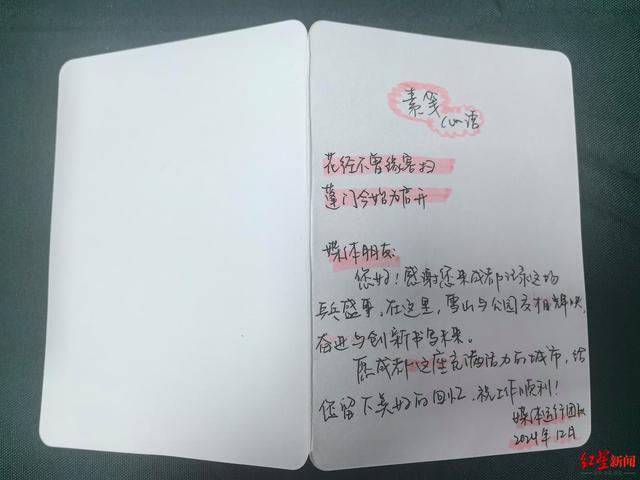 素笺
心语
花经不曾缘客扫
蓬门今始为君开
媒体朋友
您好！感谢您来成都记录这场
乒乓盛事。在这里，雪山与公园交相辉映，
奋进与创新书写未来。
愿成都这座充满活力的城市，给
您留下美好的回忆，祝工作顺利！
媒体运行团队
2024年12月
红星新闻